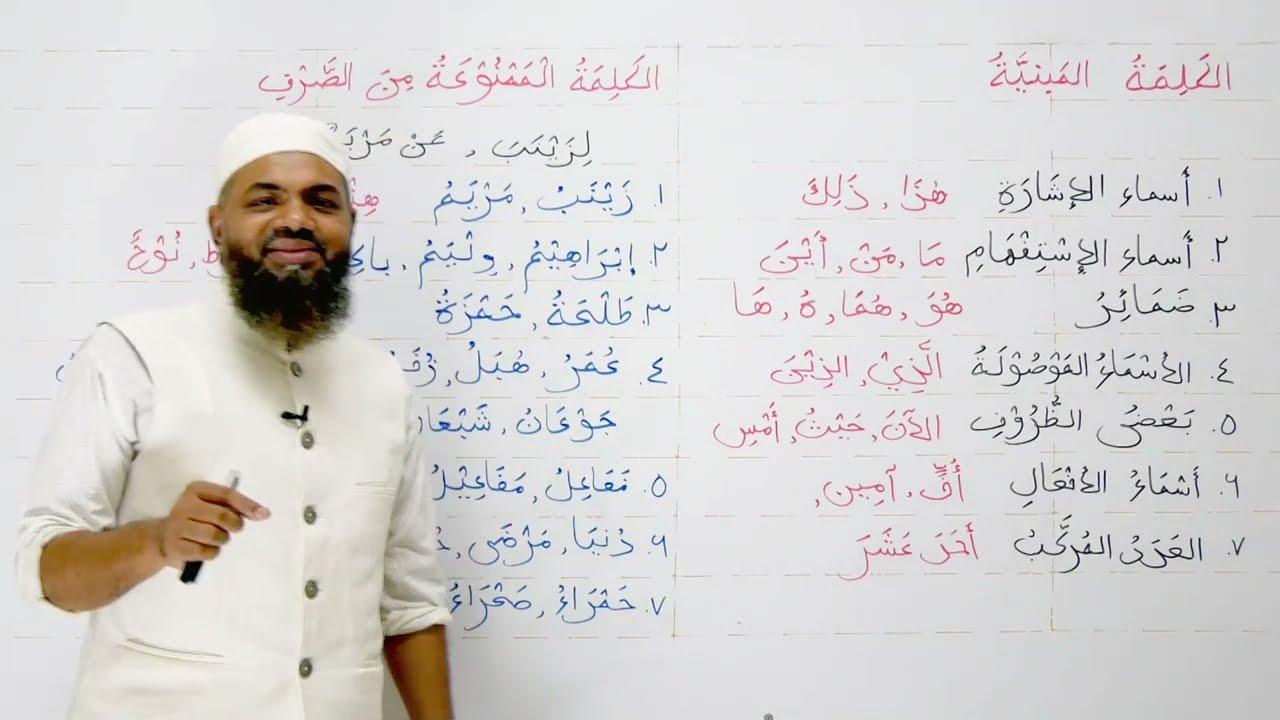 الكَلِمَةُ المَبنِيَّةُ
١. أَسماء الإِشَارَةِ هٰذَا, ذَلِكَ
٢. أَسماء الإِسْتِفْهَامِ مَا, مَنْ, أَيْنَ
٣. ضَمَائِرُ هُوَ, هُمَا, هُ, هَا
٤. الأَسْمَاءُ المَوْصُوْلَةُ الَّذِيْ, الذِيْنَ
٥. بَعْضُ الظُّرُوْفِ الآنَ, حَيْثُ, أَمْسِ
٦. أَسْمَاءُ الأَفْعَالِ أُفٍّ, آمِين,
٧. العَدَدُ المُرَكَّبُ أَحَدَ عَشَرَ
الكَلِمَةُ الْمَمْنُوْعَةُ مِنَ الصَّرْفِ
لِزَيْنَبَ, عَنْ
١. زَيْنَبُ, مَرْيَمُ
٢. إِبْرَاهِيْمُ, وِلْيَمُ, نُوْحٌ
٣. طَلْحَةُ, حَمْزَةُ
٤. عُمَرُ, هُبَلُ,
جَوْعَانُ,
٥. مَفَاعِلُ, مَفَاعِيْلُ
٦. دُنْيَا, مَرْضَى,
٧. حَمْرَاءُ, صَحْرَاءُ